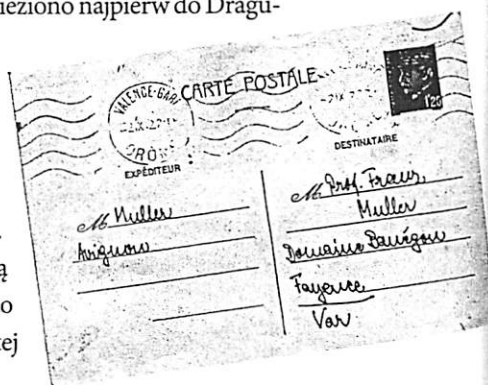 ieziono najpierw do Dragu-
CARTE POSTALE
VALENCE-GARE
DRÔME
1,20
EXPÉDITEUR
DESTINATAIRE
M Muller
Avignon
M. Prof. Franz
Muller
Domaine Banégon
Fayence
Var
ą
o
tej